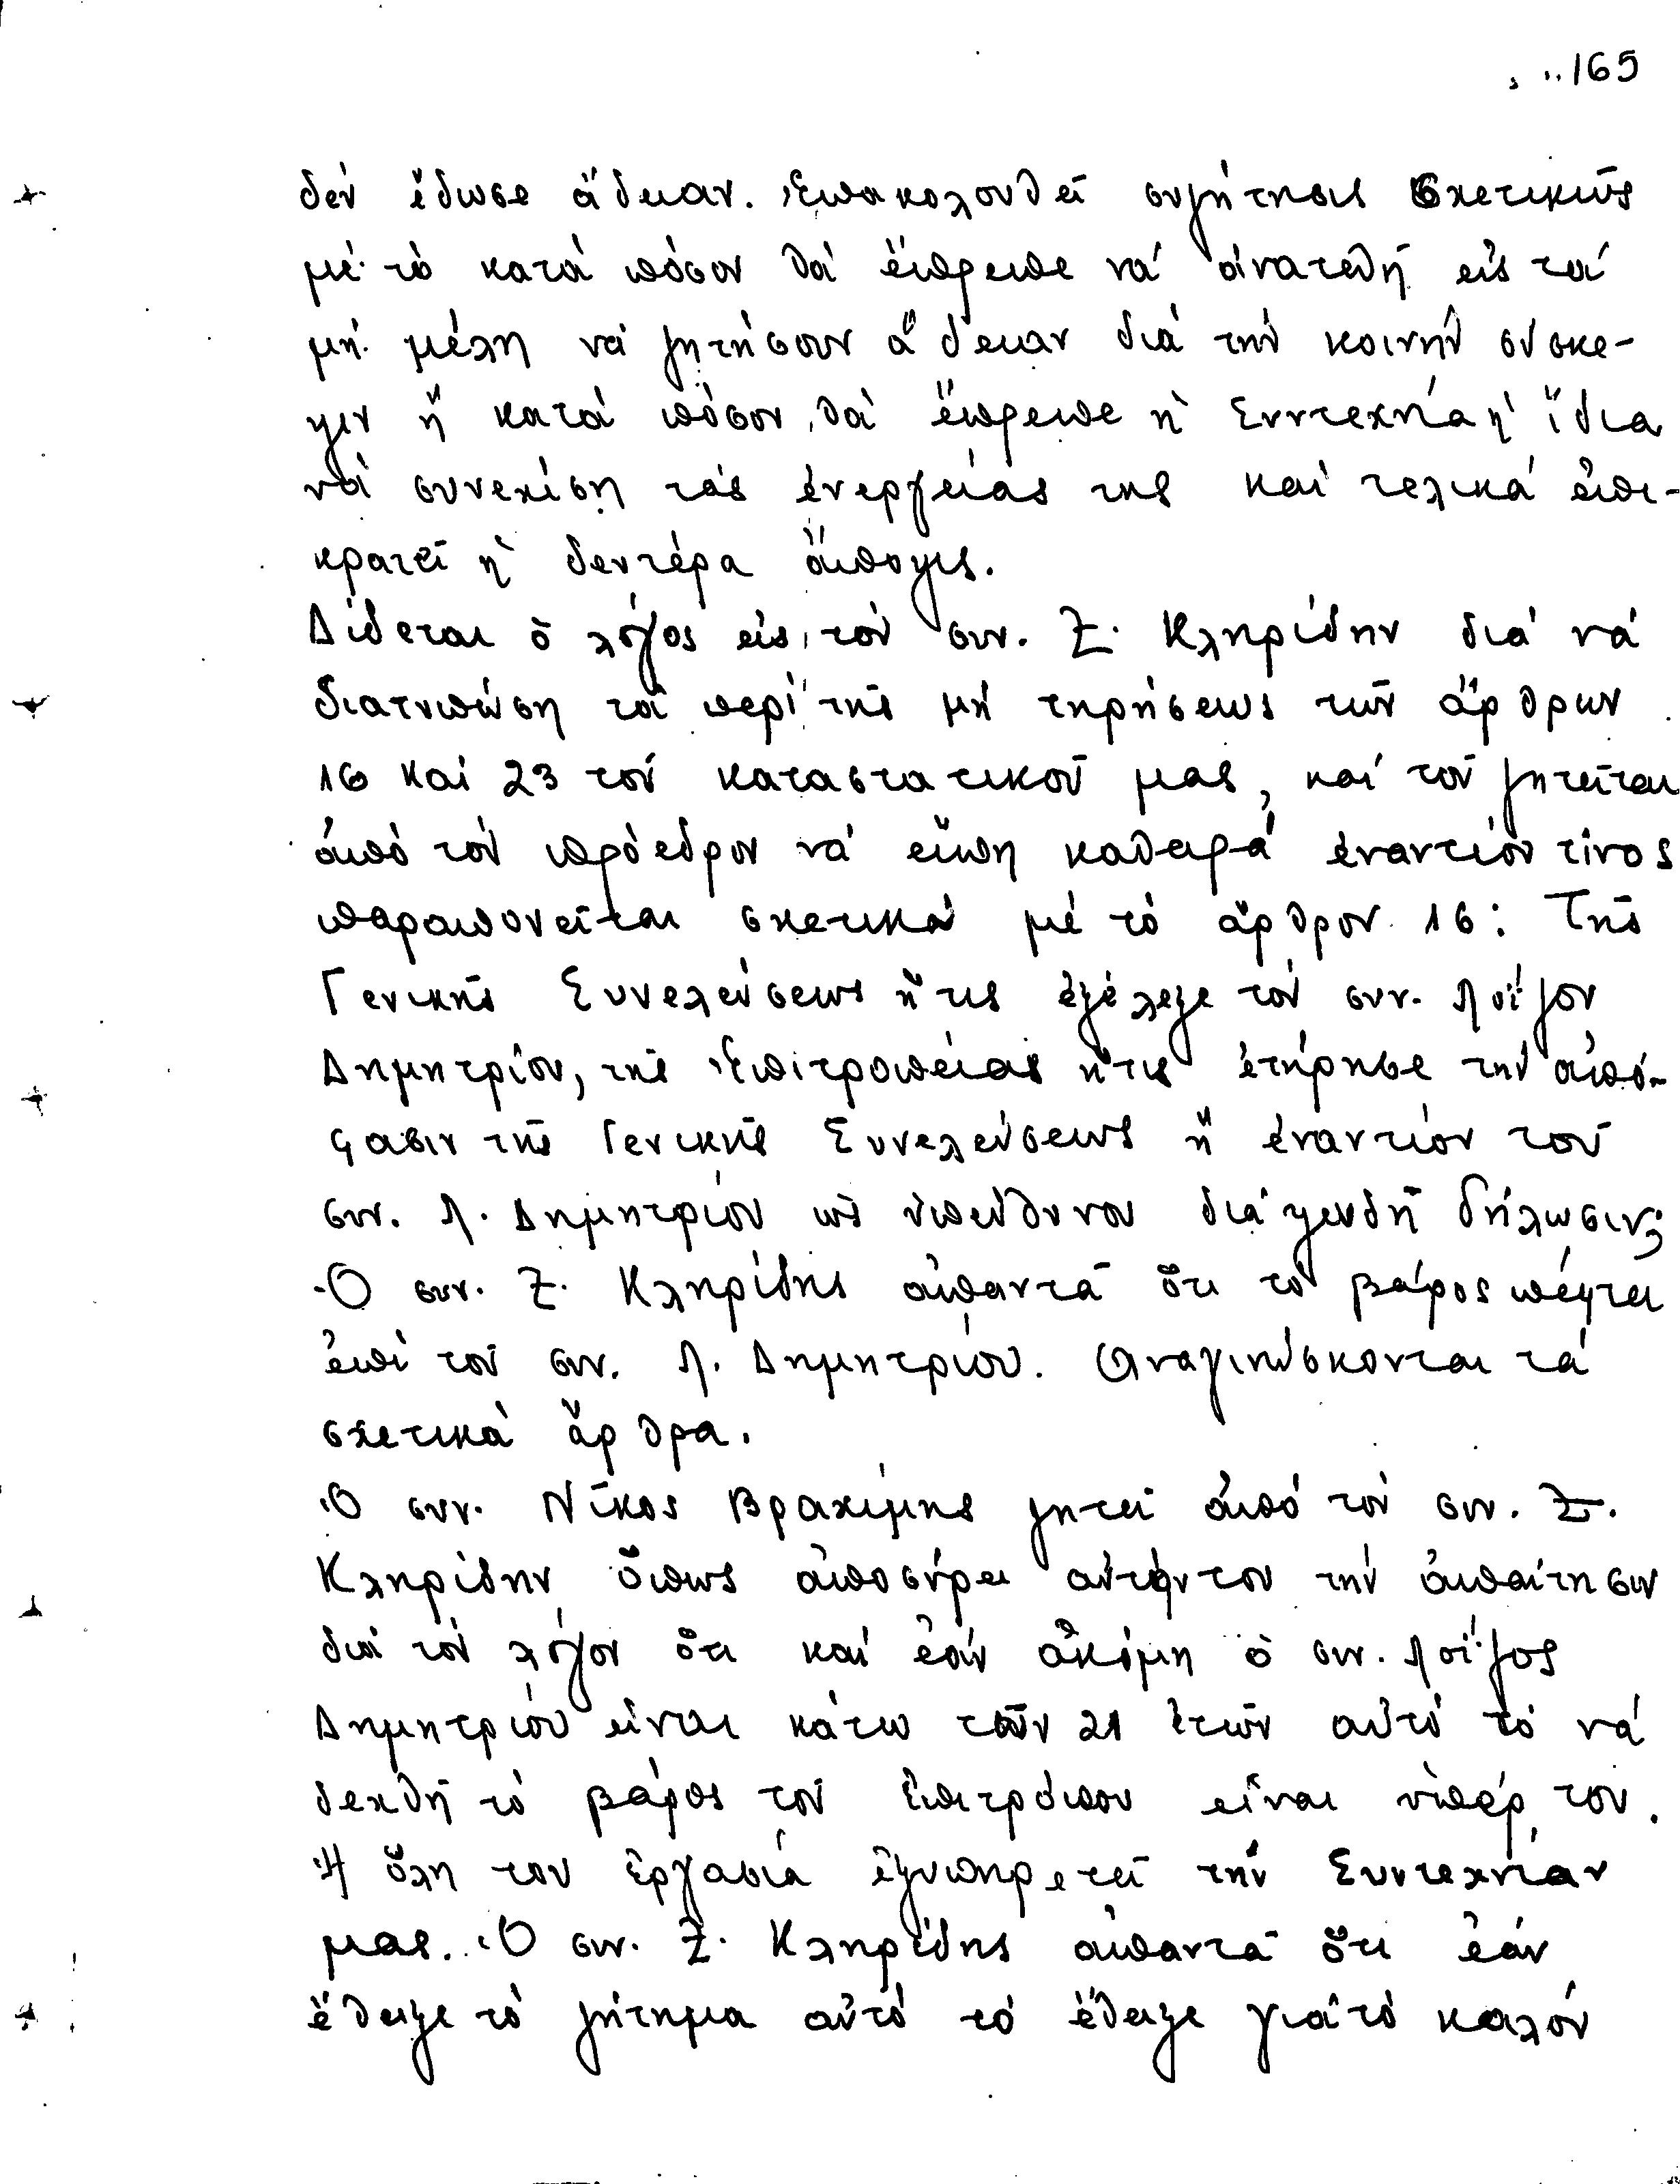 ...165
δέν ἔδωσε ἄδειαν. Ἐπακολουθεῖ συζήτησις σχετικῶς
μέ τό κατά πόσον θά ἔπρεπε νά ἀνατεθῇ εἰς τά
μή μέλη νά ζητήσουν ἄδειαν διά τήν κοινήν σύσκε-
ψιν ἤ κατά πόσον θά ἔπρεπε ἡ Συντεχνία ἡ ἴδια
νά συνεχίσῃ τάς ἐνεργείας της καί τελικά ἐπι-
κρατεῖ ἡ δευτέρα ἄποψις.
Δίδεται ὁ λόγος εἰς τόν συν. Ζ. Κληρίδην διά νά
διατυπώσῃ τά περί τῆς μή τηρήσεως τῶν ἄρθρων
16 καί 23 τοῦ καταστατικοῦ μας, καί τοῦ ζητεῖται
ἀπό τόν πρόεδρον νά εἴπῃ καθαρά ἐναντίον τίνος
παραπονεῖται σχετικά μέ τό ἄρθρον 16: Τῆς
Γενικῆς Συνελεύσεως ἥτις ἐξέλεξε τόν συν. Λοΐζον
Δημητρίου, τῆς Ἐπιτροπείας ἥτις ἐτήρησε τήν ἀπό-
φασιν τῆς Γενικῆς Συνελεύσεως ἤ ἐναντίον τοῦ
συν. Λ. Δημητρίου ὡς ὑπεύθυνου διά ψευδῆ δήλωσιν;
Ὁ συν. Ζ. Κληρίδης ἀπαντᾶ ὅτι τό βάρος πέφτει
ἐπί τοῦ συν. Λ. Δημητρίου. Ἀναγινώσκονται τά
σχετικά ἄρθρα.
Ὁ συν. Νῖκος Βραχίμης ζητεῖ ἀπό τόν συν. Ζ.
Κληρίδην ὅπως ἀποσύρει αὐτήν του τήν ἀπαίτησιν
διά τόν λόγον ὅτι καί ἐάν ἀκόμη ὁ συν. Λοΐζος
Δημητρίου εἶναι κάτω τῶν 21 ἐτῶν αὐτό τό νά
δεχθῇ τό βάρος τοῦ Ἐπιτρόπου εἶναι ὑπέρ του.
Ἡ ὅλη του ἐργασία ἐξυπηρετεῖ τήν Συντεχνίαν
μας. Ὁ συν. Ζ. Κληρίδης ἀπαντᾶ ὅτι ἐάν
ἔθειξε τό ζήτημα αὐτό τό ἔθειξε γιά τό καλόν